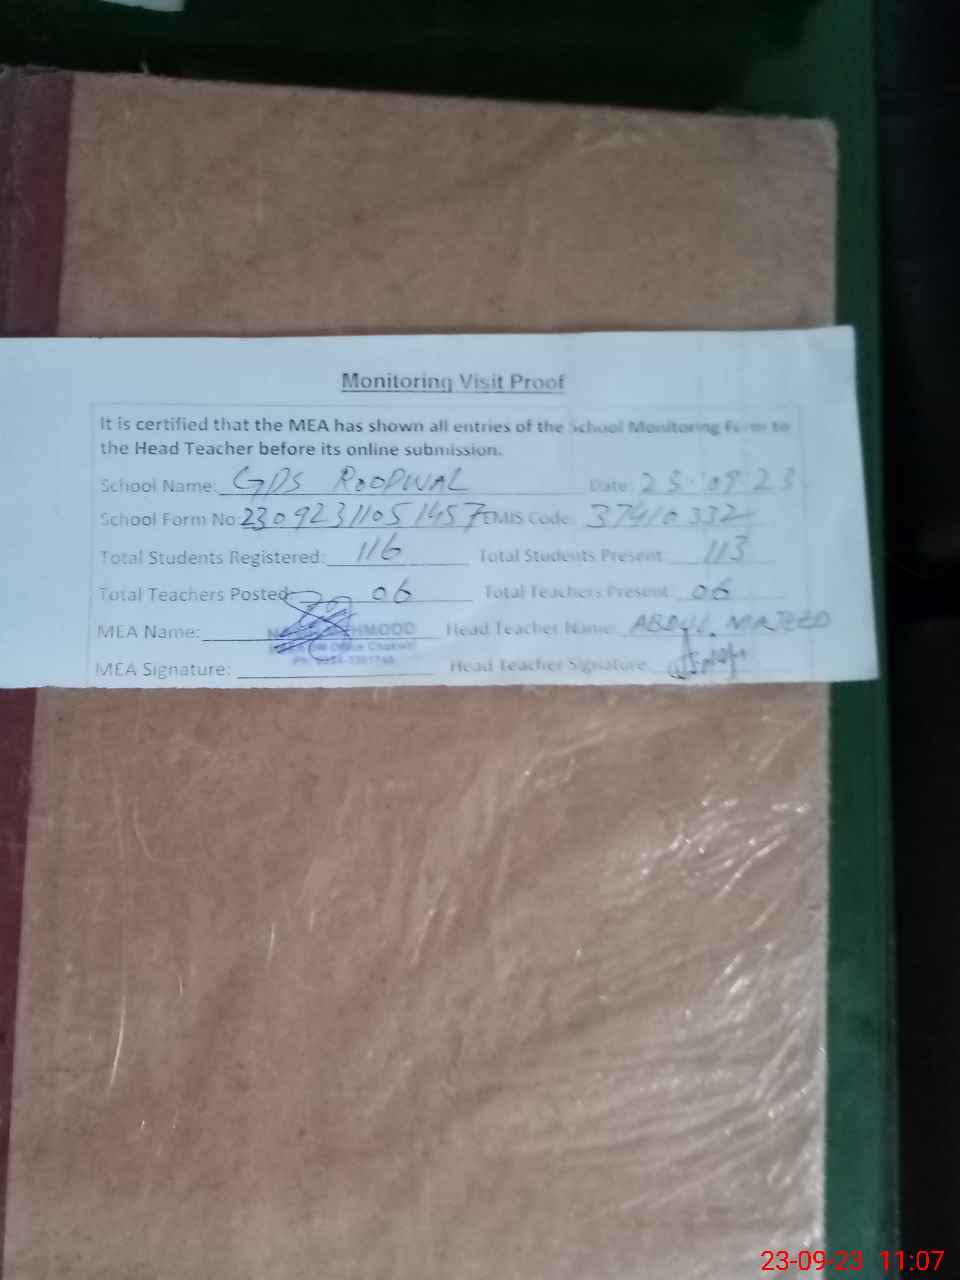 Monitoring Visit Proof
It is certified that the MEA has shown all entries of the School Monitoring Form to
the Head Teacher before its online submission.
School Name: GPS ROOPWAL Date: 23-09-23
School Form No: 23092311051457 EMIS Code: 37410332
Total Students Registered: 116 Total Students Present: 113
Total Teachers Posted: 06 Total Teachers Present: 06
MEA Name: HMOOD Head Teacher Name: ABDUL MAJEED
Office Chakwal
MEA Signature: Head Teacher Signature:
23-09-23 11:07